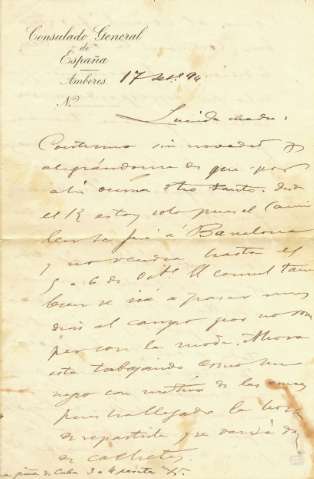 Consulado General
de
España
Amberes 17
Nº
Querida madre:
Continuo sin novedad y
alegrándome de que por
ahí ocurra otro tanto. desde
el 12 estoy solo pues el
se fué a Barcelona
y no vendrá hasta el
5 o 6 de Octe. El consul tam
bien se vá a pasar unos
dias al campo por no
con la moda. Ahora
está trabajando como un
negro con motivo de las
pues ha llegado la hora
de repartirlas y se dan
de cachetes.